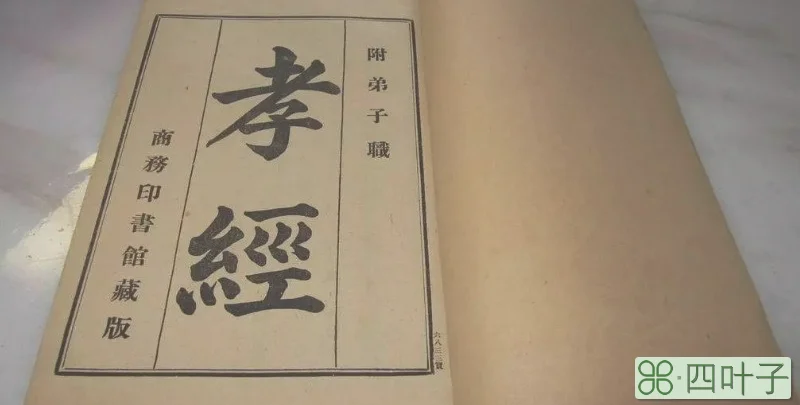 附弟子職
孝經
商務印書館藏版
六八三三號
四叶子